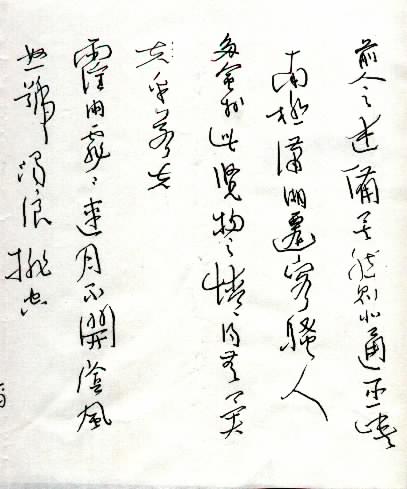 前人之述備矣然則北通巫峽
南極瀟湘遷客騷人
多會於此覽物之情得無異
乎若夫
霪雨霏々連月不開陰風
怒號濁浪排空